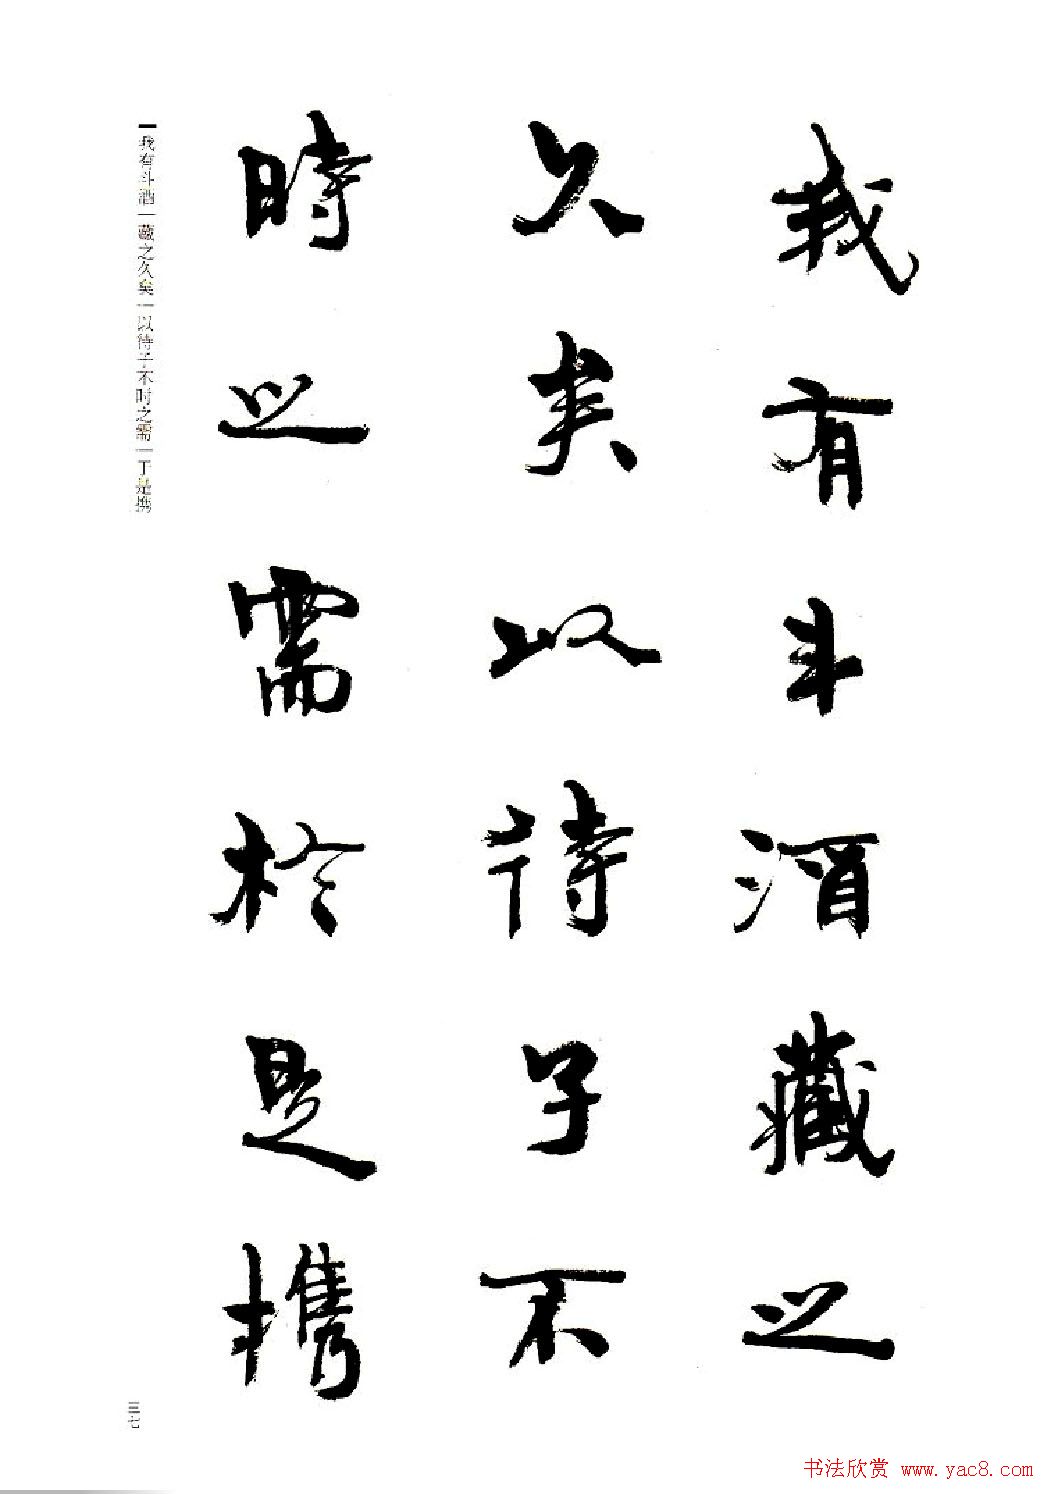 我有斗酒藏之
久矣以待子不
時之需於是携
我有斗酒｜藏之久矣｜以待子不时之需｜于是携
三七
书法欣赏 www.yac8.com